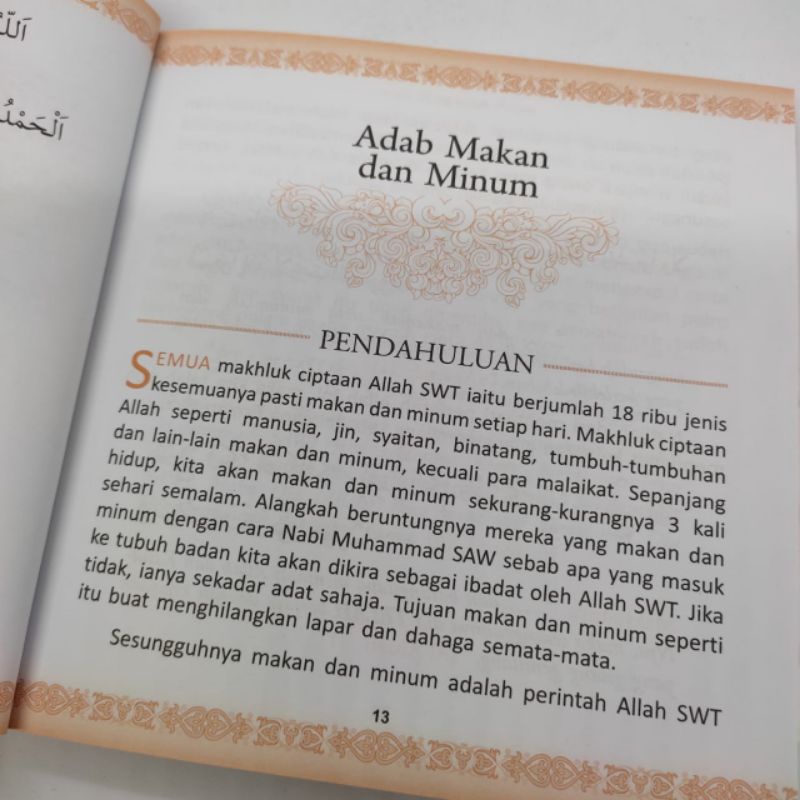 اَللّٰ
اَلْحَمْدُ
Adab Makan
dan Minum
PENDAHULUAN
SEMUA makhluk ciptaan Allah SWT iaitu berjumlah 18 ribu jenis
kesemuanya pasti makan dan minum setiap hari. Makhluk ciptaan
Allah seperti manusia, jin, syaitan, binatang, tumbuh-tumbuhan
dan lain-lain makan dan minum, kecuali para malaikat. Sepanjang
hidup, kita akan makan dan minum sekurang-kurangnya 3 kali
sehari semalam. Alangkah beruntungnya mereka yang makan dan
minum dengan cara Nabi Muhammad SAW sebab apa yang masuk
ke tubuh badan kita akan dikira sebagai ibadat oleh Allah SWT. Jika
tidak, ianya sekadar adat sahaja. Tujuan makan dan minum seperti
itu buat menghilangkan lapar dan dahaga semata-mata.
Sesungguhnya makan dan minum adalah perintah Allah SWT
13